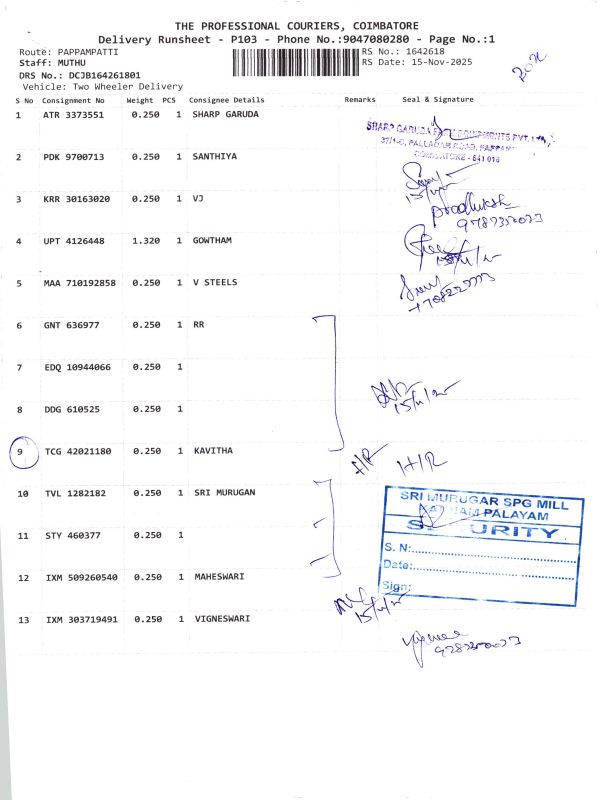 THE PROFESSIONAL COURIERS, COIMBATORE
Delivery Runsheet - P103 - Phone No.:9047080280 - Page No.:1
Route: PAPPAMPATTI RS No.: 1642618
Staff: MUTHU RS Date: 15-Nov-2025
DRS No.: DCJB164261801
Vehicle: Two Wheeler Delivery
S No Consignment No Weight PCS Consignee Details Remarks Seal & Signature
1 ATR 3373551 0.250 1 SHARP GARUDA
SHARP GARUDA
COIMBATORE - 641 016
2 PDK 9700713 0.250 1 SANTHIYA
3 KRR 30163020 0.250 1 VJ
4 UPT 4126448 1.320 1 GOWTHAM
5 MAA 710192858 0.250 1 V STEELS
6 GNT 636977 0.250 1 RR
7 EDQ 10944066 0.250 1
8 DDG 610525 0.250 1
9 TCG 42021180 0.250 1 KAVITHA
10 TVL 1282182 0.250 1 SRI MURUGAN
SRI MURUGAR SPG MILL
PALAYAM
SECURITY
11 STY 460377 0.250 1
S. N:
Date:
12 IXM 509260540 0.250 1 MAHESWARI
Sign:
13 IXM 303719491 0.250 1 VIGNESWARI